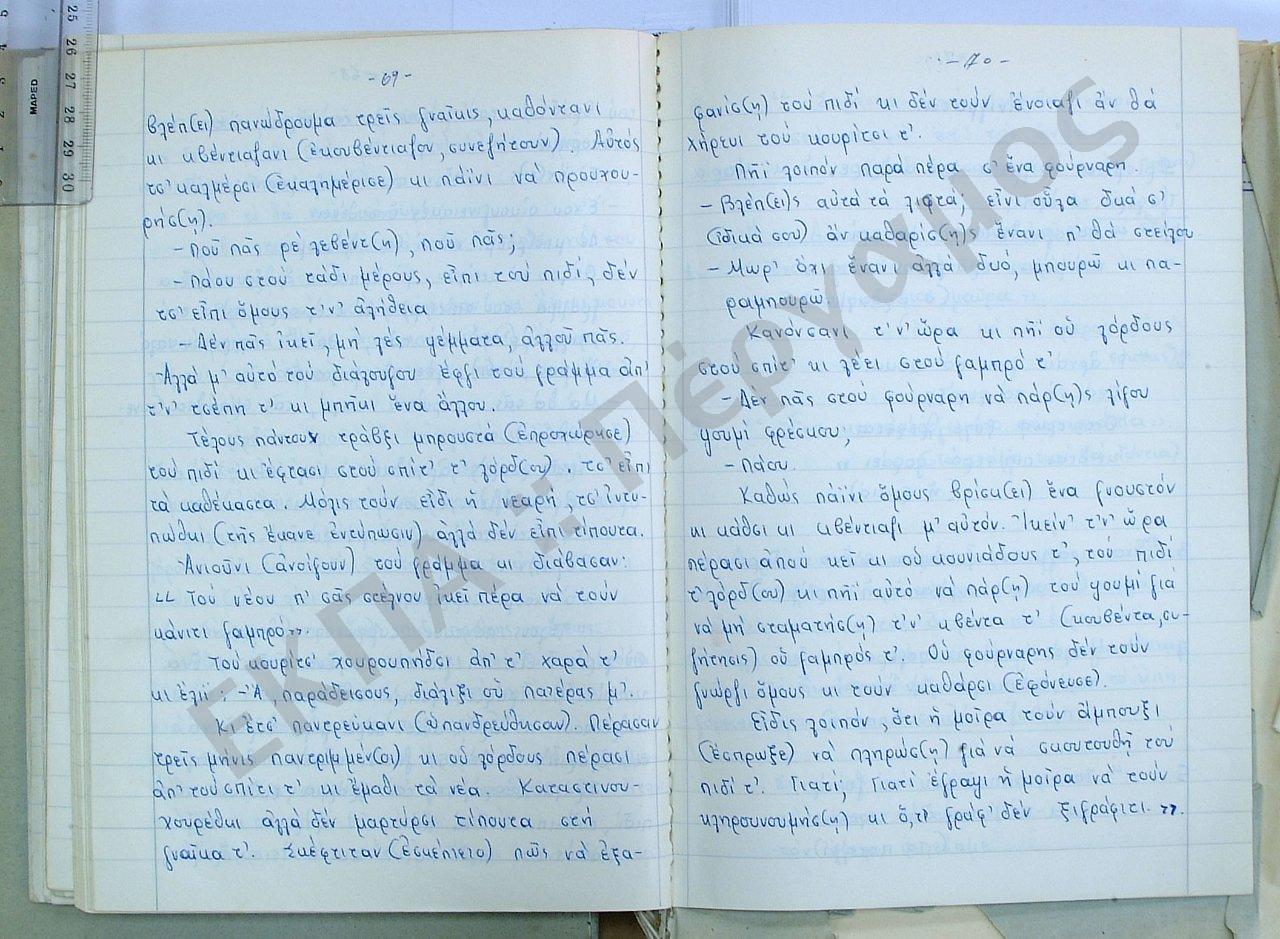 -69-
βλέπ(ει) πανώδρουμα τρεῖς γναῖκις, καθόντανι
κι κβέντιαζανι (ἐκουβέντιαζον, συνεζήτουν) Αὐτός
τσ' καλμέρσι (ἐκαλημέρισε) κι πάϊνι νά προυχου-
ρήσ(ῃ).
- Ποῦ πᾶς ρε λεβέντ(η), ποῦ πᾶς;
- Πάου στού τάδι μέρους, εἶπι τού πιδί, δέν
τσ' εἶπι ὅμους τ'ν' ἀλήθεια
- Δέν πᾶς ἰκεῖ, μή λές ψέμματα, ἀλλοῦ πᾶς.
Ἀλλά μ' αὐτό τού διάλουγου ἔφγι τού γράμμα ἀπ'
τ'ν' τσέπη τ' κι μπῆκι ἕνα ἄλλου.
Τέλους πάντουν τράβξι μπρουστά (ἐπροχώρησε)
τού πιδί κι ἔφτασι στού σπίτ' τ' λόρδ(ου). τσ' εἶπι
τά καθέκαστα. Μόλις τούν εἶδι ἡ νεαρή, τσ' ἰντυ-
πώθκι (τῆς ἔκανε ἐντύπωσιν) ἀλλά δέν εἶπι τίπουτα.
Ἀνιοῦνι (ἀνοίγουν) τού γράμμα κι διάβασαν:
"Τού νέου π' σᾶς στέλνου ἰκεῖ πέρα νά τούν
κάνιτι γαμπρό".
Τού κουρίτσ' χουρουπήδσι ἀπ' τ' χαρά τ'
κι ἔλιϊ: -Ἀ, παράδεισους, διάλιξι οὑ πατέρας μ'.
Κι ἔτσ' παντρεύκανι (ὑπανδρεύθησαν). Πέρασαν
τρεῖς μῆνις παντριμμέν(οι) κι οὑ λόρδους πέρασι
ἀπ' τού σπίτι τ' κι ἔμαθι τά νέα. Καταστινου-
χουρέθκι ἀλλά δέν μαρτύρσι τίπουτα στή
γναῖκα τ'. Σκέφτιταν (ἐσκέπτετο) πῶς νά ἐξα-
-70-
φανίσ(ῃ) τού πιδί κι δέν τούν ἔνοιαζι ἄν θά
χήρευι τού κουρίτσι τ'.
Πῆϊ λοιπόν παρά πέρα σ' ἕνα φούρναρη.
- Βλέπ(ει)ς αὐτά τά λιφτά; εἶνι οὗλα δκά σ'
(ἰδικά σου) ἄν καθαρίσ(ῃ)ς ἕνανι π' θά στείλου
- Μωρ' ὄχι ἕνανι ἀλλά δυό, μπουρῶ κι πα-
ραμπουρῶ.
Κανόνσανι τ'ν' ὥρα κι πῆϊ οὑ λόρδους
στού σπίτ' κι λέει στού γαμπρό τ'
- Δέν πᾶς στού φούρναρη νά πάρ(ῃ)ς λίγου
ψουμί φρέσκου;
- Πάου.
Καθώς πάϊνι ὅμους βρίσκ(ει) ἕνα γνουστόν
κι κάθσι κι κβέντιαζι μ' αὐτόν. Ἰκείν' τ'ν' ὥρα
πέρασι ἀπού κεῖ κι οὑ κουνιάδους τ', τού πιδί
τ' λόρδ(ου) κι πῆϊ αὐτό νά πάρ(ῃ) τού ψουμί γιά
νά μή σταματήσ(ῃ) τ'ν' κβέντα τ' (κουβέντα, συ-
ζήτησις) οὑ γαμπρός τ'. Οὑ φούρναρης δέν τούν
γνώρζι ὅμους κι τούν καθάρσι (ἐφόνευσε).
Εἶδις λοιπόν, ὅτι ἡ μοῖρα τούν ἄμπουξι
(ἔσπρωξε) νά πληρώσ(ῃ) γιά νά σκουτουθῇ τού
πιδί τ'. Γιατί; Γιατί ἔγραψι ἡ μοῖρα νά τούν
κληρουνουμήσ(ῃ) κι ὅ,τι γράφ' δέν ξιγράφιτι.".
ΕΚΠΑ :: Πέργαμος
25
26
27
28
29
30
MAPED